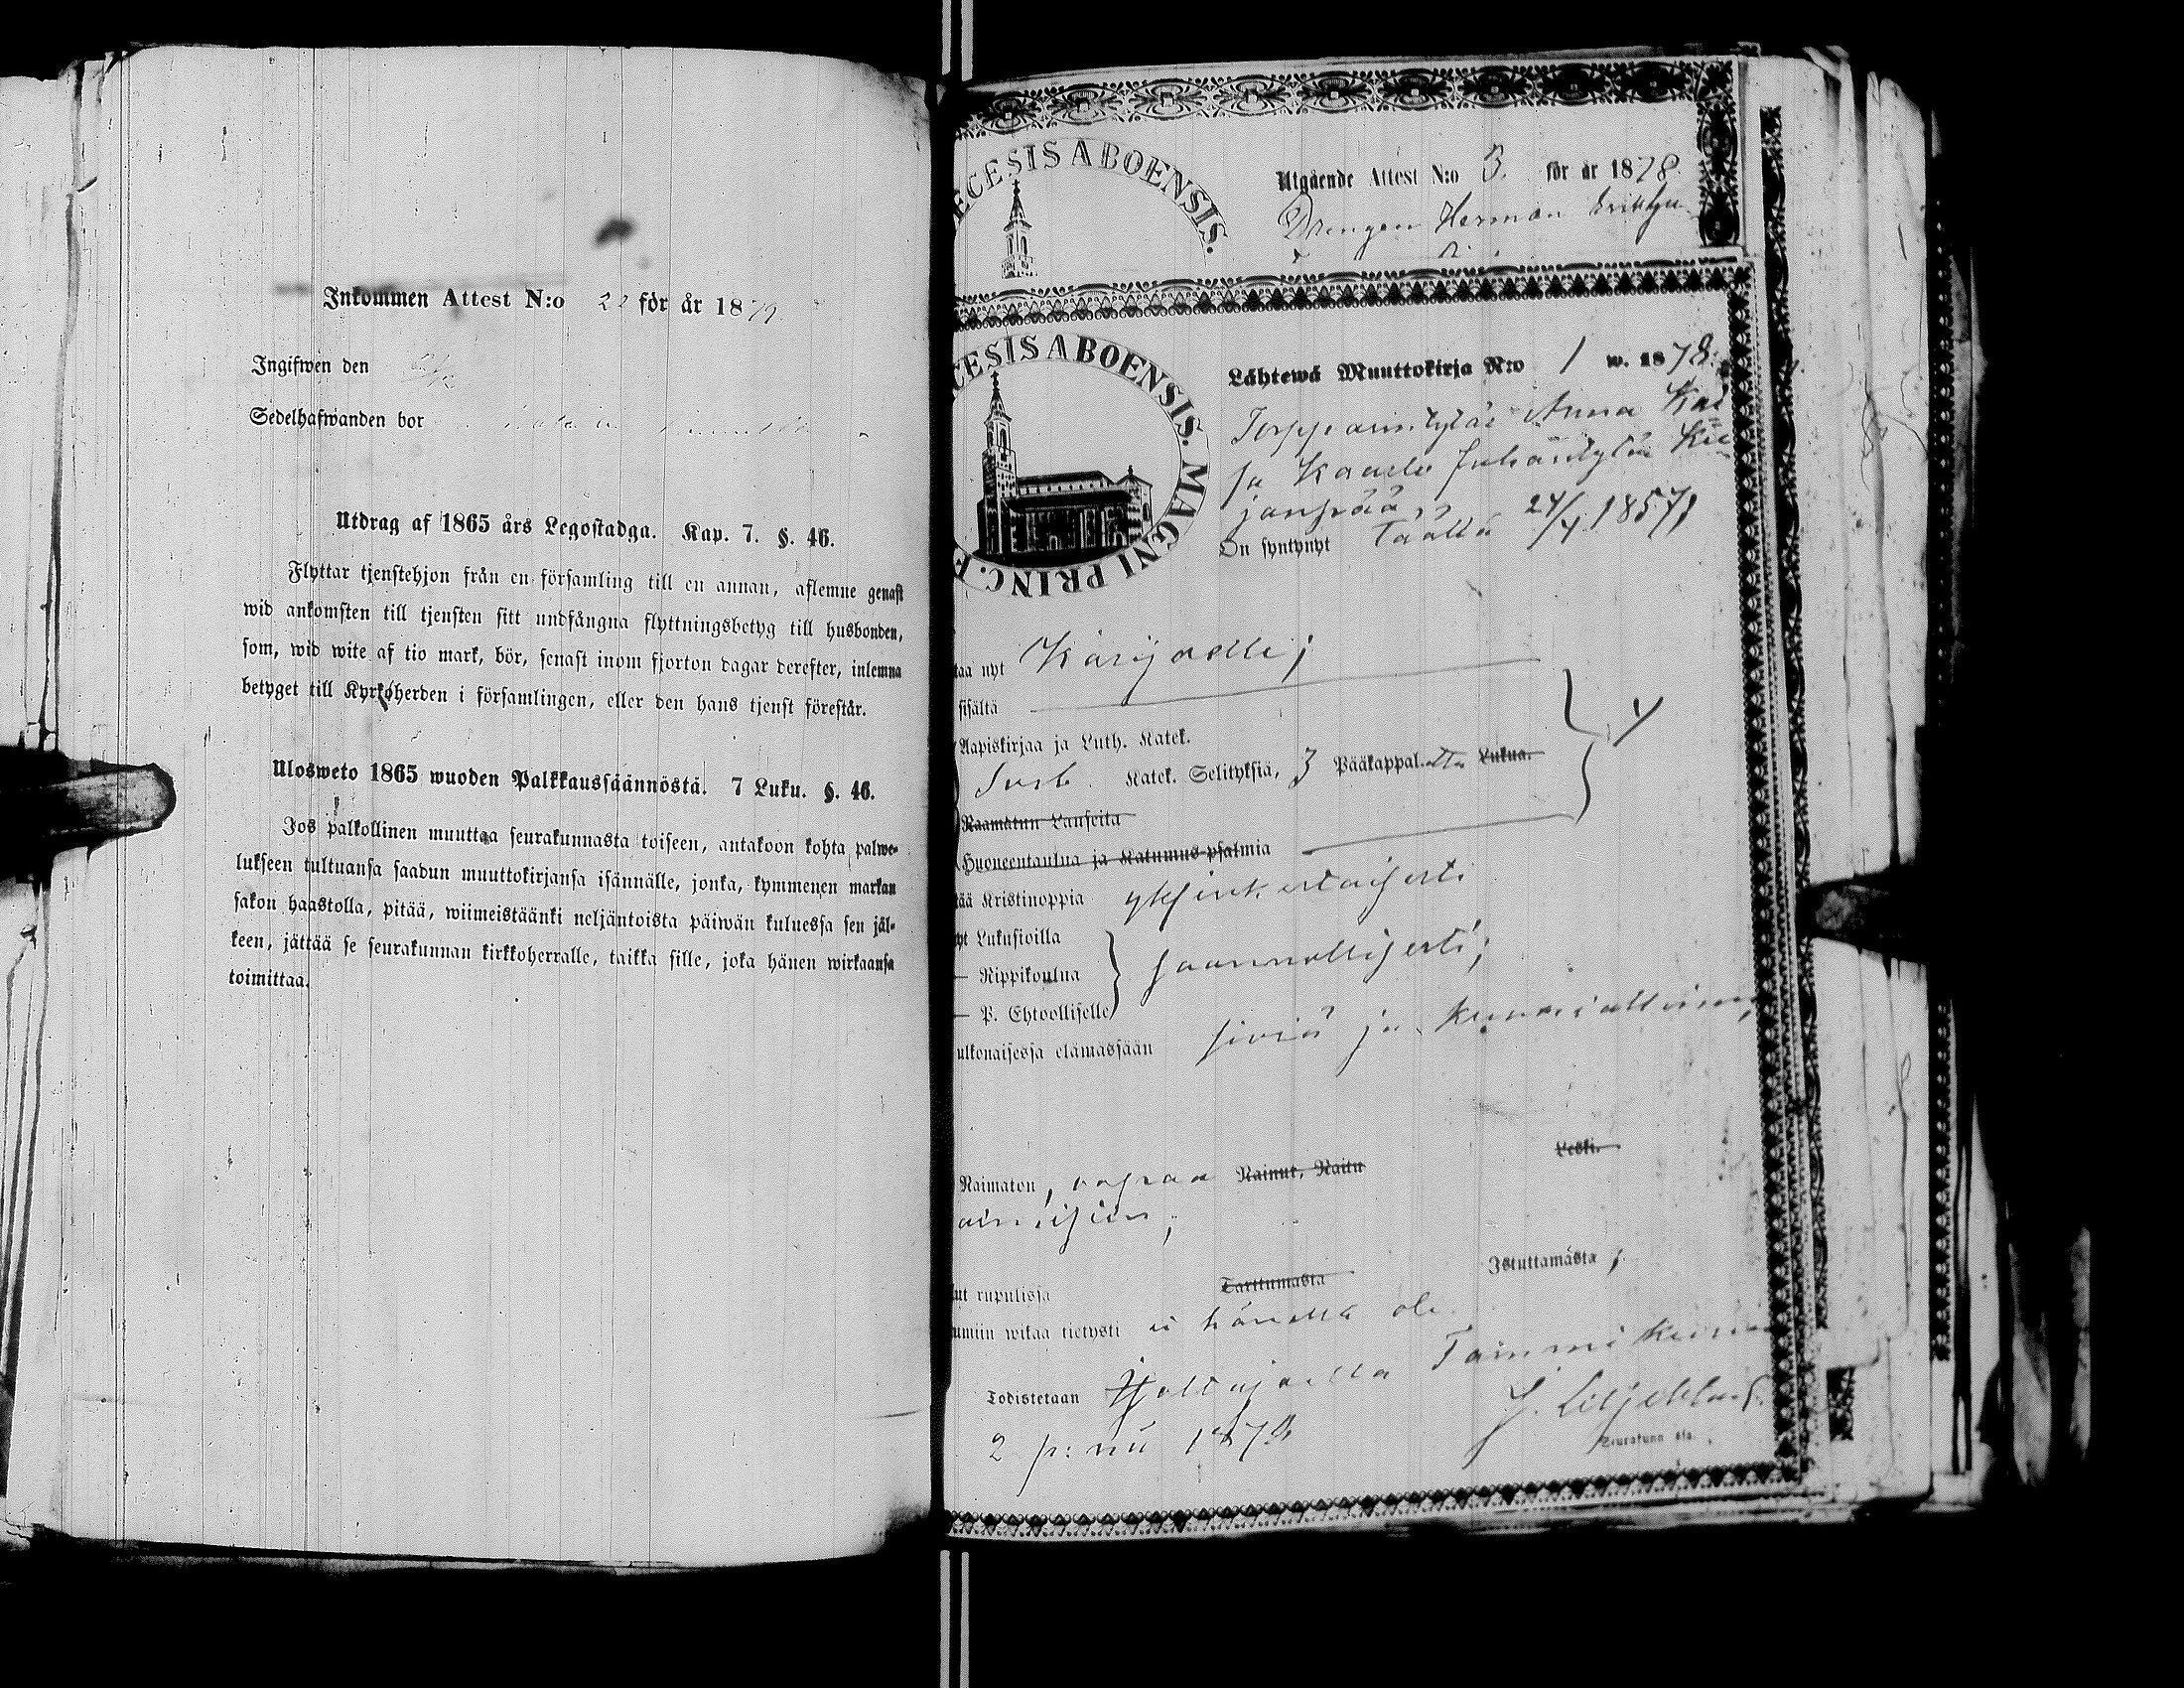 Inkommen Attest N:o 22 för år 1879.
Ingifwen den
Sedelhafwanden bor
Utdrag af 1865 års Legostadga. Kap. 7. §. 46.
Flyttar tjenstehjon från en församling till en annan, aflemne genast
wid ankomsten till tjensten sitt undfångna flyttningsbetyg till husbonden,
som, wid wite af tio mark, bör, senast inom fjorton dagar derefter, inlemna
betyget till Kyrkoherden i församlingen, eller den hans tjenst förestår.
Ulosweto 1865 wuoden Palkkaussäännöstä. 7 Luku. §. 46.
Jos palkollinen muuttaa seurakunnasta toiseen, antakoon kohta palwe-
lukseen tultuansa saadun muuttokirjansa isännälle, jonka, kymmenen markan
sakon haastolla, pitää, wiimeistäänki neljäntoista päiwän kuluessa sen jäl-
keen, jättää se seurakunnan kirkkoherralle, taikka sille, joka hänen wirkaansa
toimittaa.
ECESIS ABOENSIS.
Utgående Attest N:o 3. för år 1878.
Drengen Herman
CESIS ABOENSIS. MAGNI PRINC. F
Lähtewä Muuttokirja N:o 1 w. 1878.
Torpparintytär Anna Kai
sa Kaarle Juhantytär
On syntynyt Täällä 24/4 1857;
taa nyt Karijoelle;
sisältä
Aapiskirjaa ja Luth. Katek.
Sveb. Katek. Selityksiä, 3 Pääkappal.tta Lukua.
Raamatun Lauseita
Huoneentaulua ja Katumus-psalmia
tää Kristinoppia yksinkertaisesti
yt Lukusioilla
— Rippikoulua säännöllisesti;
— P. Ehtoolliselle
ulkonaisessa elämässään siviä ja kunniallinen,
Naimaton, vapaa Nainut, Naitu Leski.
aimisiin;
ut rupulissa Tarttumasta Istuttamasta;
umiin wikaa tietysti ei hänellä ole.
Todistetaan Tammikuun
2 p:nä 1878
J. Liljeblad.
Seurakunn